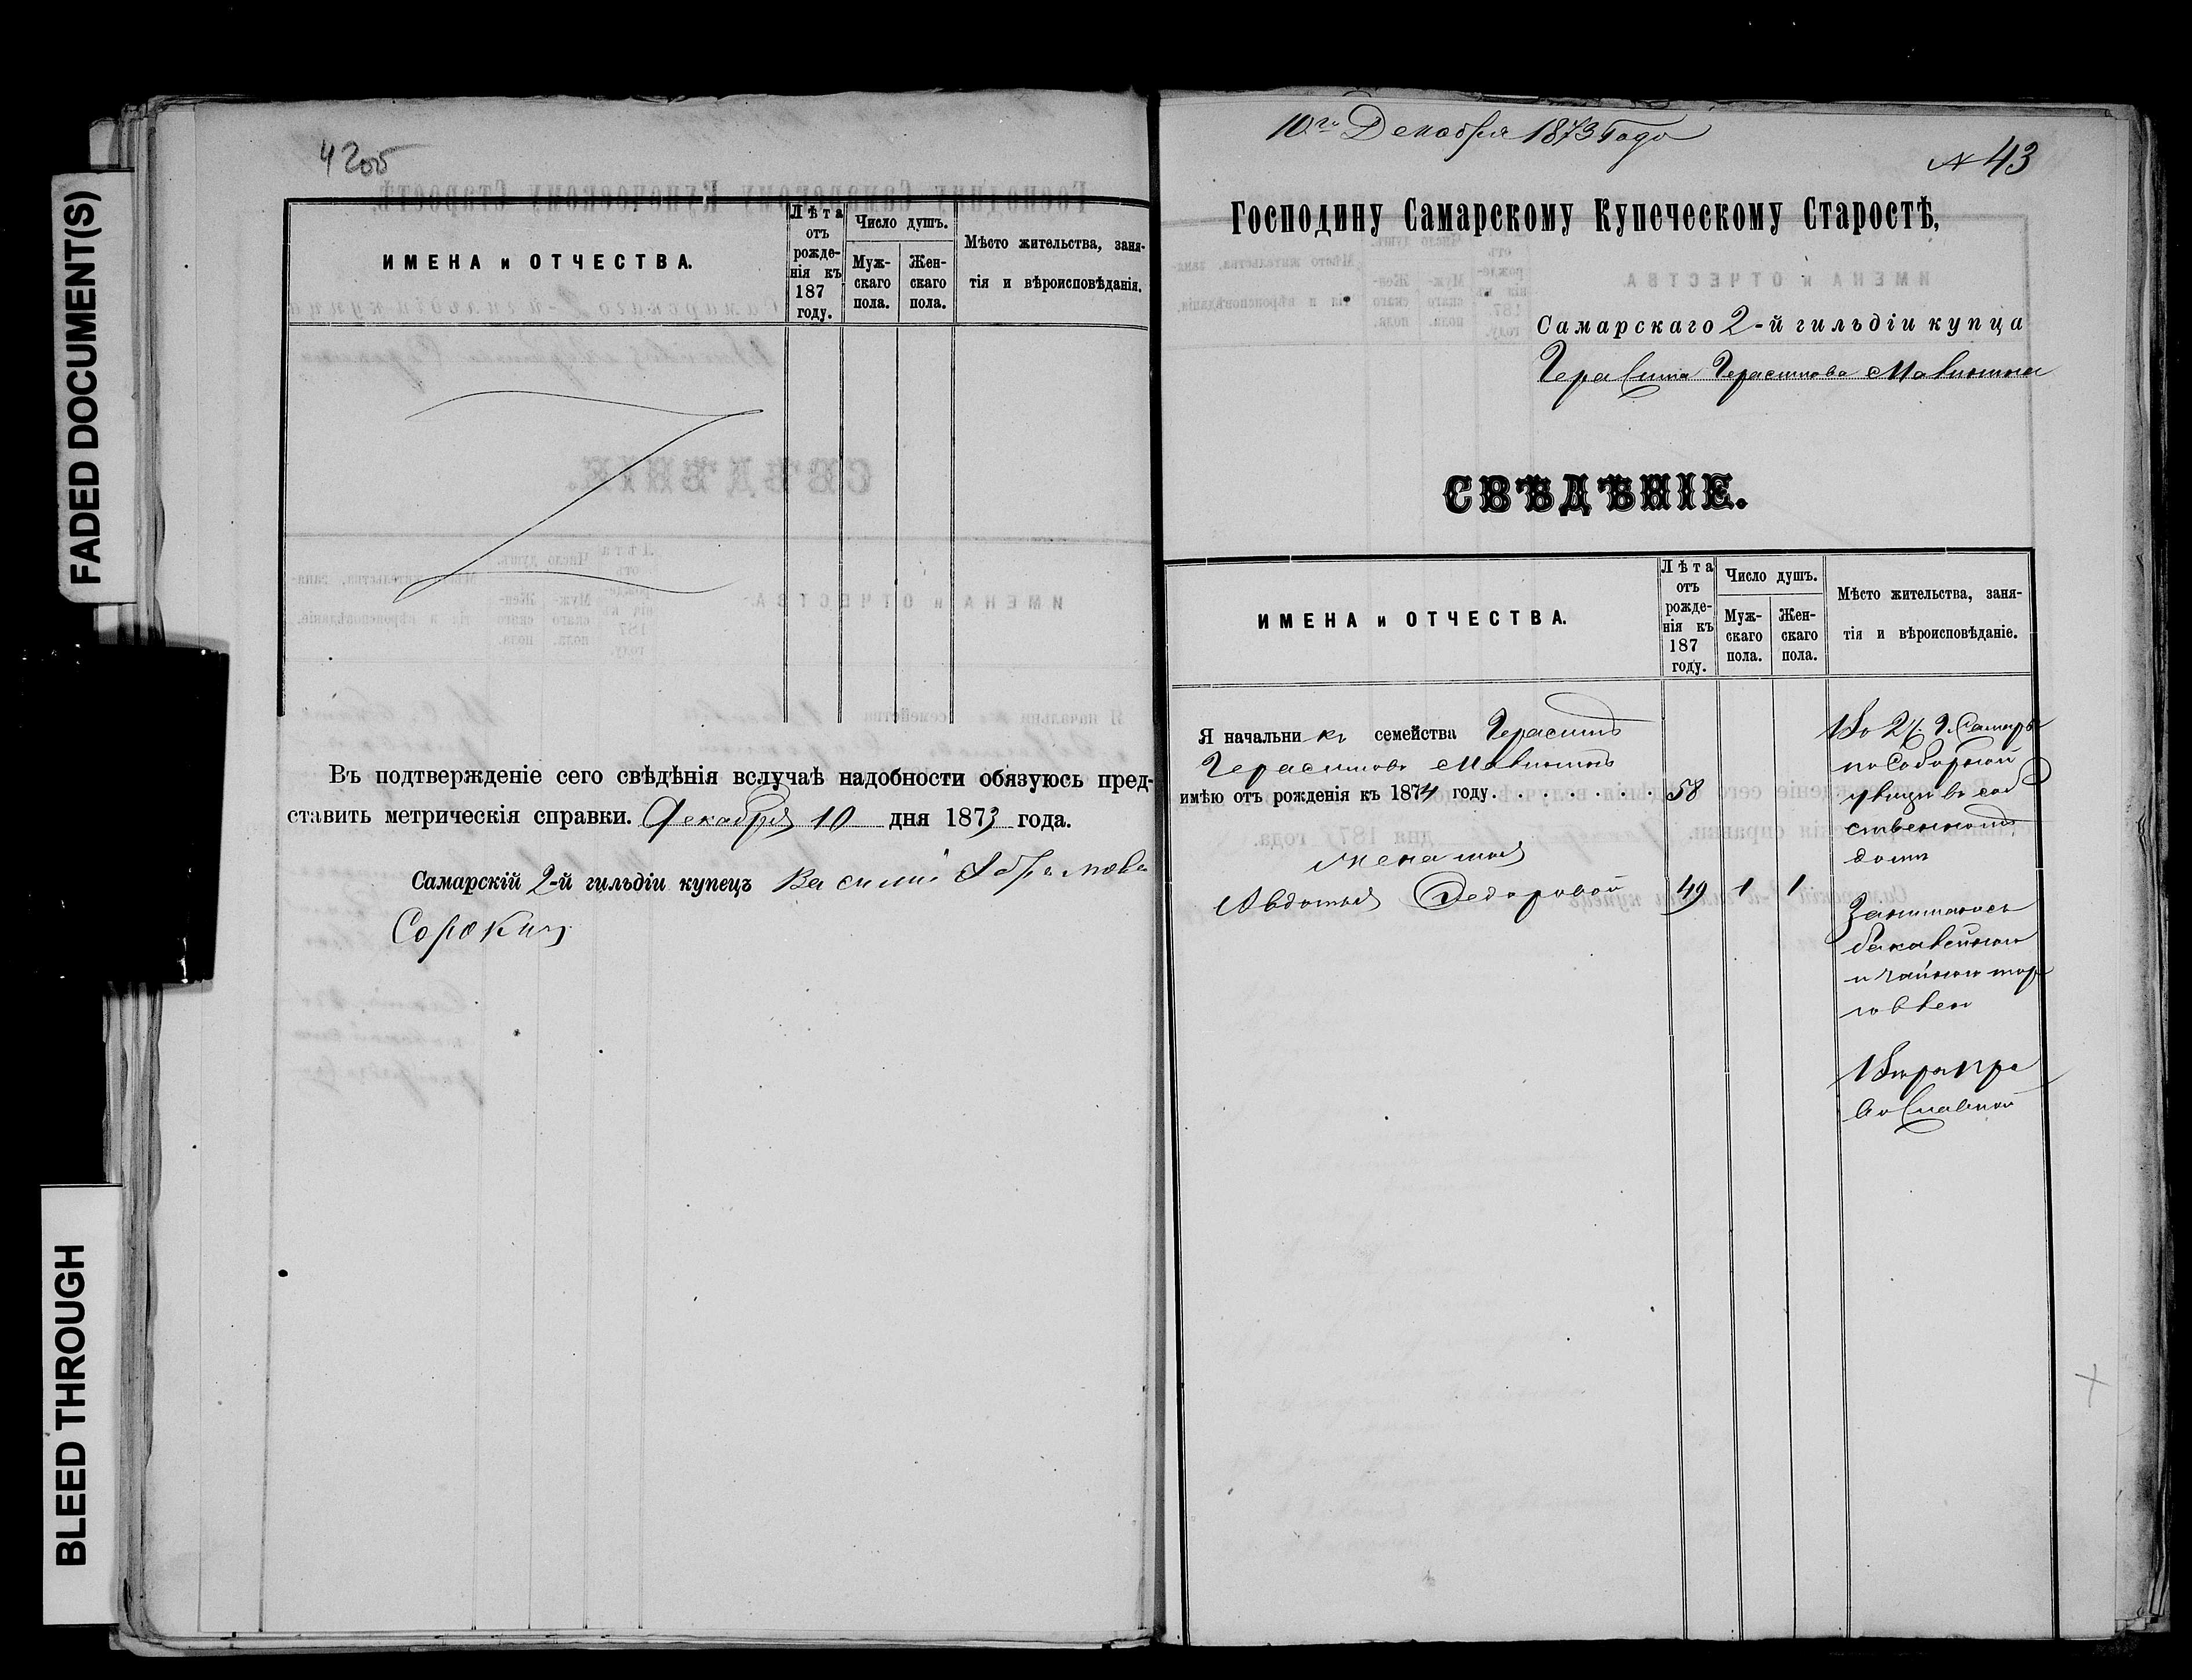 FADED DOCUMENT(S)
BLEED THROUGH
42об
ИМЕНА и ОТЧЕСТВА.
Лѣта отъ рожденія къ 187 году.
Число душъ.
Мужскаго пола.
Женскаго пола.
Мѣсто жительства, занятія и вѣроисповѣданія.
Въ подтвержденіе сего свѣдѣнія вслучаѣ надобности обязуюсь пред-
ставить метрическія справки. Декабря 10 дня 1873 года.
Самарскій 2-й гильдіи купецъ Василий Абрамовъ
Сорокинъ
10го Декабря 1873 Года
№ 43
Господину Самарскому Купеческому Старостѣ,
Самарскаго 2-й гильдіи купца
Герасима Герасимова
СВѢДѢНІЕ.
ИМЕНА и ОТЧЕСТВА.
Лѣта отъ рожденія къ 187 году.
Число душъ.
Мужскаго пола.
Женскаго пола.
Мѣсто жительства, заня-
тія и вѣроисповѣданіе.
Я начальникъ семейства Герасимъ
Герасимовъ
имѣю отъ рожденія къ 1874 году. . . . . . . 58
жена моя
Авдотья Федоровой 49 1 1
Во 2 ч. Г. Самары
по Соборной
улицы въ соб
ственномъ
доме
Занимаюсь
бакалейною
и чайною тор
говлею
Веры пра
вославной